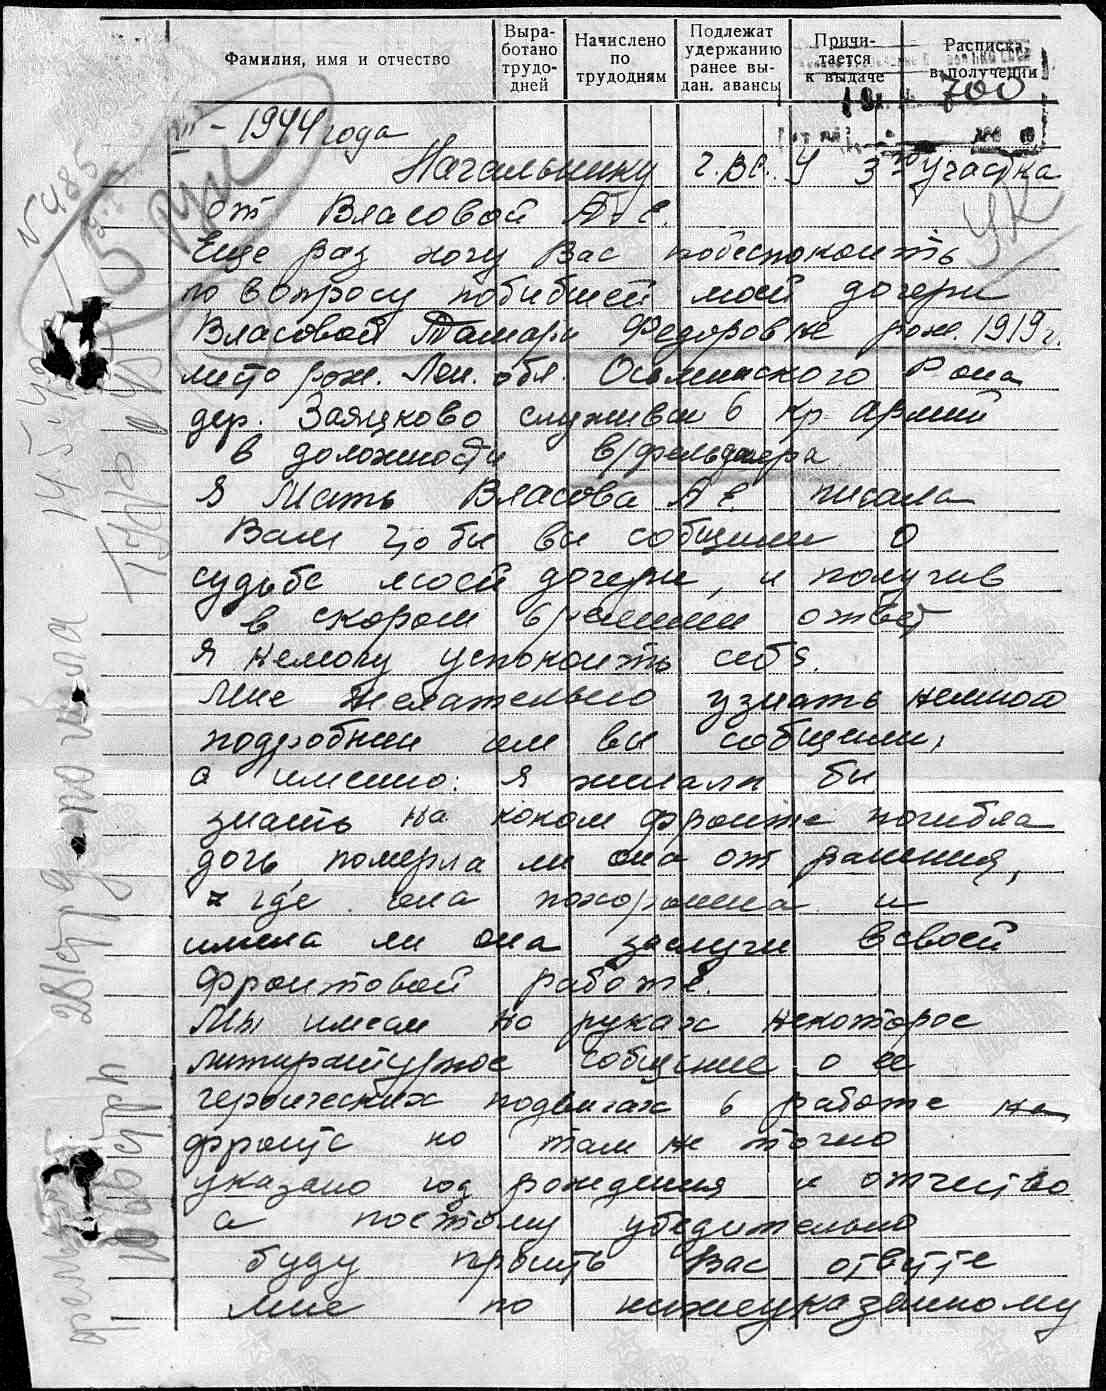 Фамилия, имя и отчество
Выра-
ботано
трудо-
дней
Начислено
по
трудодням
Подлежат
удержанию
ранее вы-
дан. авансы
Причи-
тается
к выдаче
Расписка
в получении
700
- 1944 года
Начальнику г. ВС. У 3го участка
от Власовой А Е.
Еще раз хочу Вас побеспокоить
по вопросу побибшей моей дочери
Власовой Тамари Федоровне рож. 1919 г.
место рож. Лен. обл. Осьминского Рона
дер. Заяцково служивси в кр армии
в должности в/фельдшера
Я Мать Власова А Е. писала
Вам чтобы вы собщили о
судьбе моей дочери, и получив
в скором времини ответ
Я немогу успокоить себя.
Мне желательно узнать немного
подробнеи чем вы собщили,
а имено: Я жилала бы
знать на коком фронте погибла
дочь, померла ли она от ранения,
где она похоронена и
имела ли она заслуги в своей
фронтовой работе.
Мы имеем на руках некоторое
литиратурное собщение о ее
героических подвигах в работе на
фронте но там не точно
указано год рождения и отчество
а поетому убедительно
буду просить Вас ответте
мне по нижеуказанному